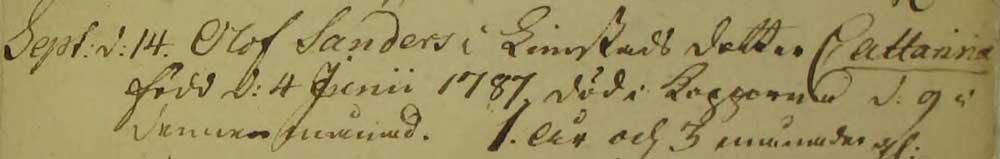 Sept: d: 14. Olof Sanders i Rimstads dotter Cattarina
född d: 4 Junii 1787. död i Kopporna d. 9 i
denna månad. 1. År och 3 månader gl.